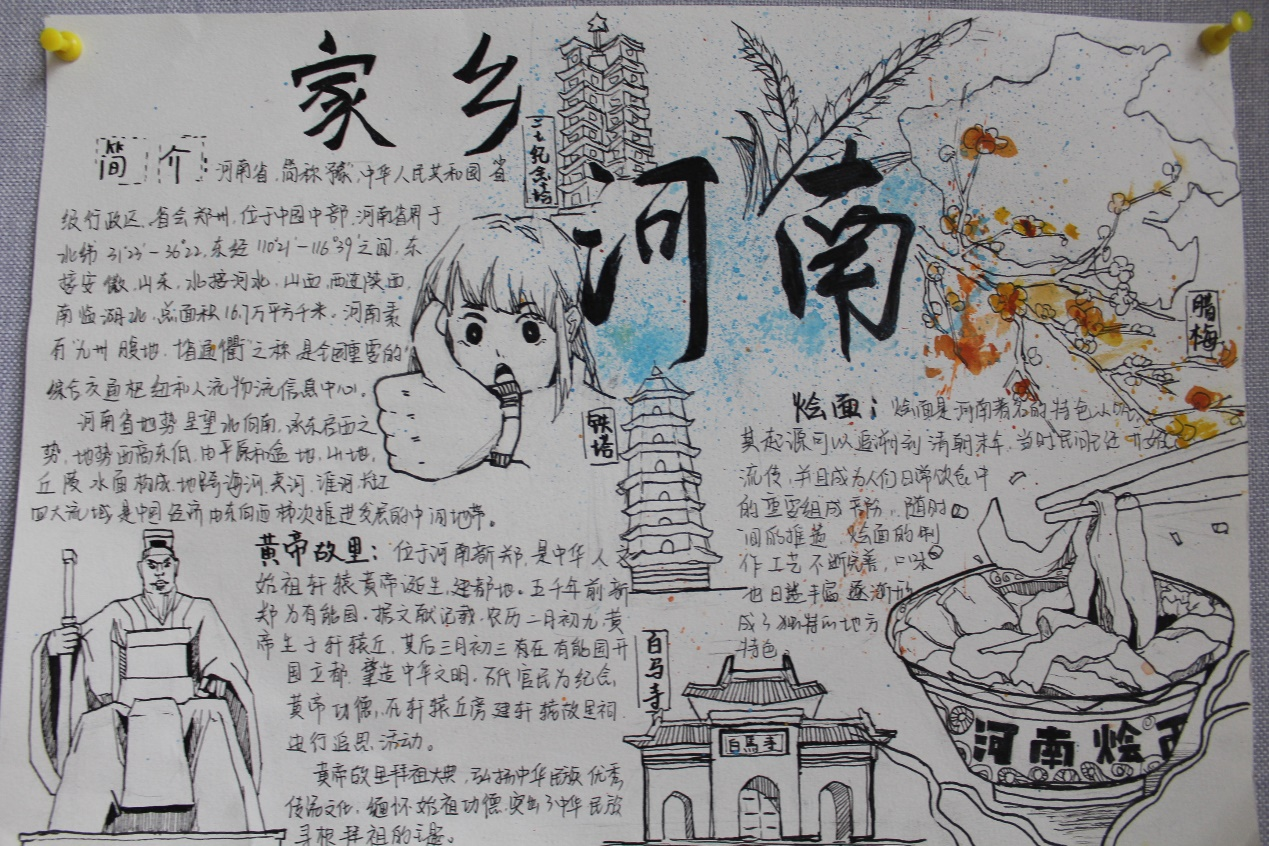 家乡
河南
简介：河南省，简称"豫"，中华人民共和国省
级行政区，省会郑州，位于中国中部，河南省界于
北纬31°23'-36°22'，东经110°21'-116°39'之间，东
接安徽、山东，北接河北、山西，西连陕西，
南临湖北，总面积16.7万平方千米。河南素
有"九州腹地、十省通衢"之称，是全国重要的
综合交通枢纽和人流物流信息中心。
河南省地势呈望北向南、承东启西之
势，地势西高东低，由平原和盆地、山地、
丘陵、水面构成，地跨海河、黄河、淮河、长江
四大流域，是中国经济由东向西梯次推进发展的中间地带。
二七纪念塔
腊梅
铁塔
烩面：烩面是河南著名的特色
其起源可以追溯到清朝末年，当时民间已
流传，并且成为人们日常饮食中
的重要组成部分。随时
间的推移，烩面的制
作工艺不断完善，口味
也日趋丰富，逐渐形
成了独特的地方
特色
黄帝故里：位于河南新郑，是中华人文
始祖轩辕黄帝诞生、建都地。五千年前新
郑为有熊国。据文献记载，农历二月初九黄
帝生于轩辕丘，其后三月初三有在有熊国开
国立都，肇造中华文明。历代官民为纪念
黄帝功德，在轩辕丘旁建轩辕故里祠
进行追思活动。
黄帝故里拜祖大典，弘扬中华民族优秀
传统文化，缅怀始祖功德，突出了中华民族
寻根拜祖的主题。
白马寺
白馬寺
河南烩面